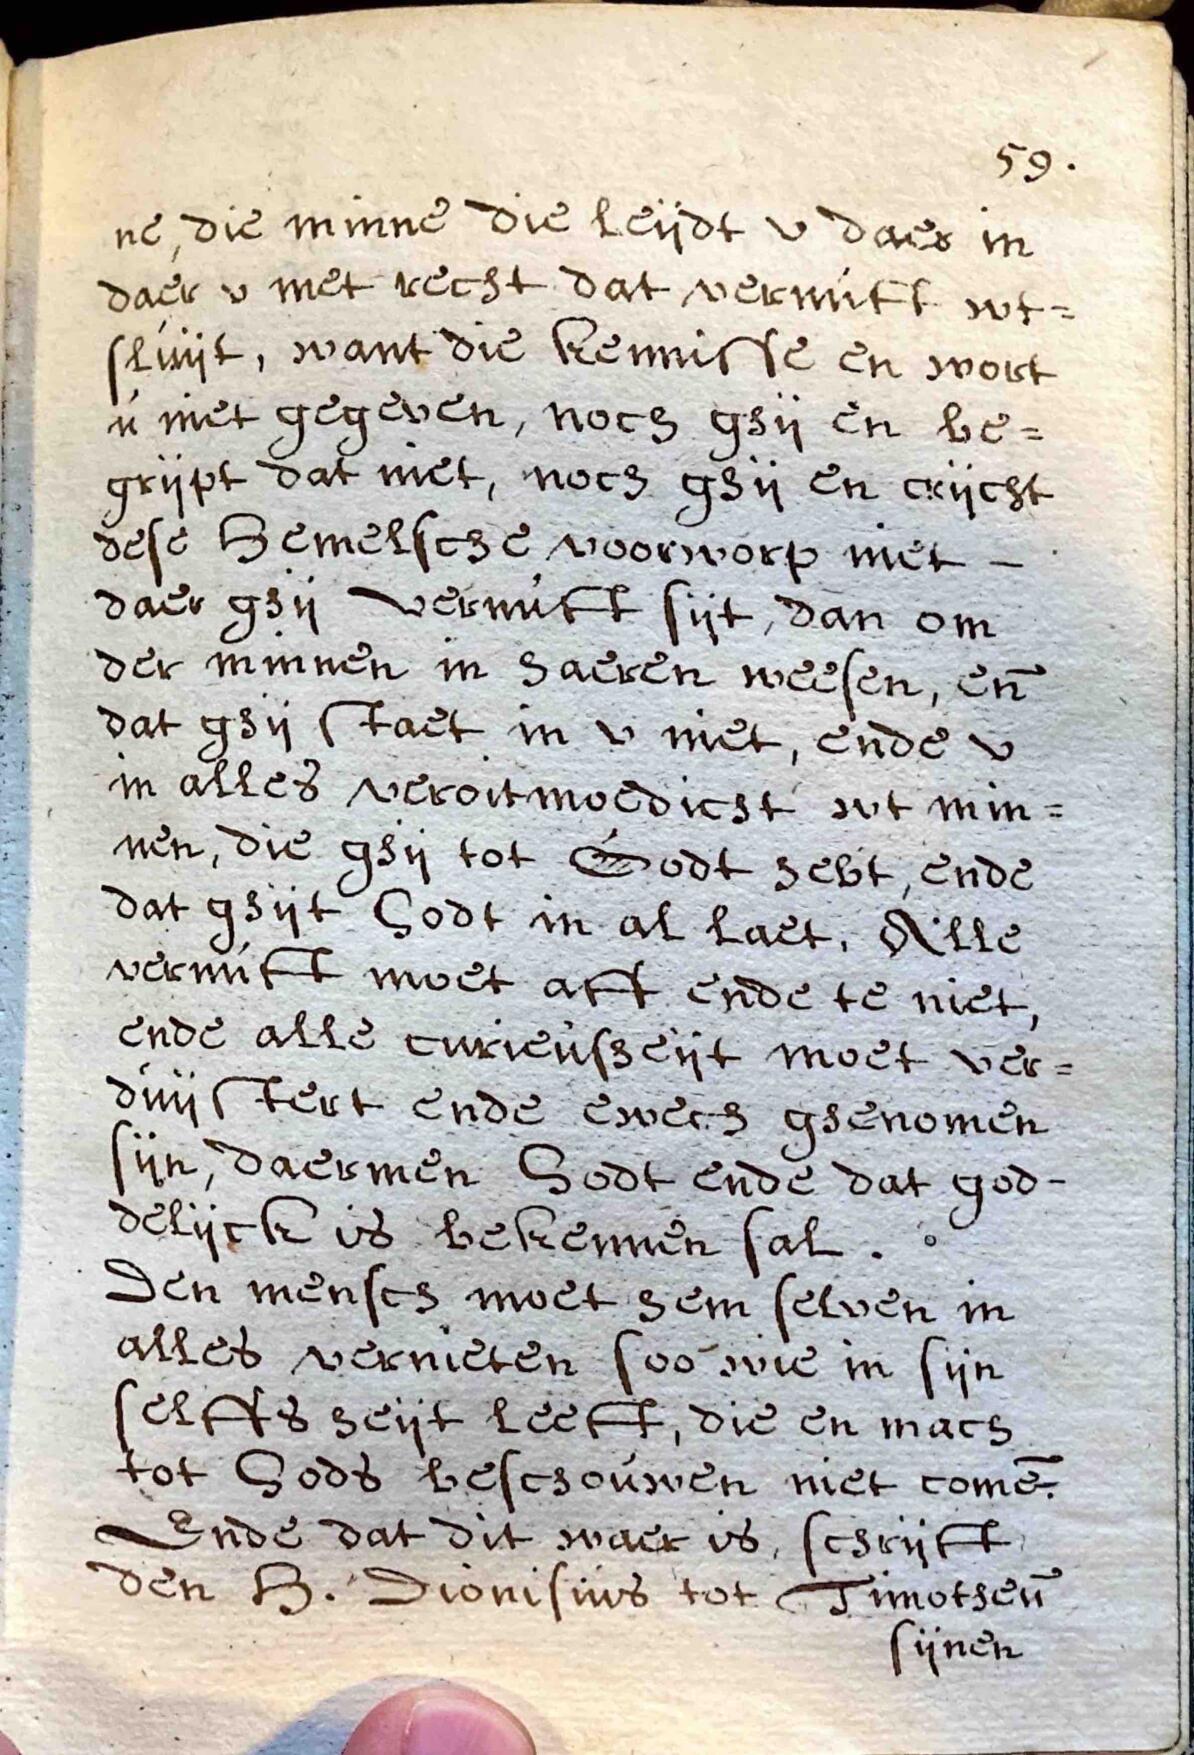 59.
ne, die minne die leijdt v daer in
daer v met recht dat vernúft wt=
slúijt, want die kennisse en wort
ú niet gegeven, noch ghij en be=
grijpt dat niet, noch ghij en crijcht
dese Hemelsche voorworp niet –
daer ghij vernúft sijt, dan om
der minnen in haeren weesen, en̄
dat ghij staet in v niet, ende v
in alles veroitmoedicht wt min=
nen, die ghij tot Godt hebt, ende
dat ghijt Godt in al laet. Alle
vernúft moet aff ende te niet,
ende alle curieúsheijt moet ver=
dúijstert ende ewech ghenomen
sijn, daermen Godt ende dat god-
delijck is bekennen sal.
Den mensch moet hem selven in
alles vernieten soo wie in sijn
selffs heijt leeft, die en mach
tot Gods beschoúwen niet comē.
Ende dat dit waer is, schrijft
den H. Dionisiús tot Timotheū
sijnen